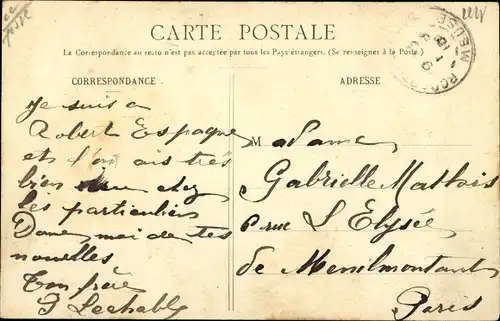 CARTE POSTALE
La Correspondance au recto n'est pas acceptée par tous les Pays étrangers. (Se renseigner à la Poste.)
CORRESPONDANCE
je suis a
Robert Espagne
et l'on ais très
bien chez
les particuliers
Donne moi de tes
nouvelles
Ton frère
ADRESSE
Madame
Gabrielle
6 rue L'Elysée
de Menilmontant
Paris
MEUSE